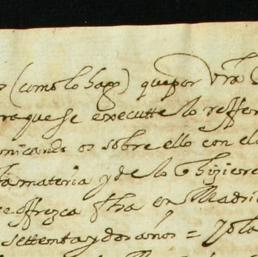 (como lo hago) que por vra
que se executte lo reffer
nicando os sobre ello con el
ta materia y de lo q hiziere
se offrezca ffha en Madrid
settenta y dos años =